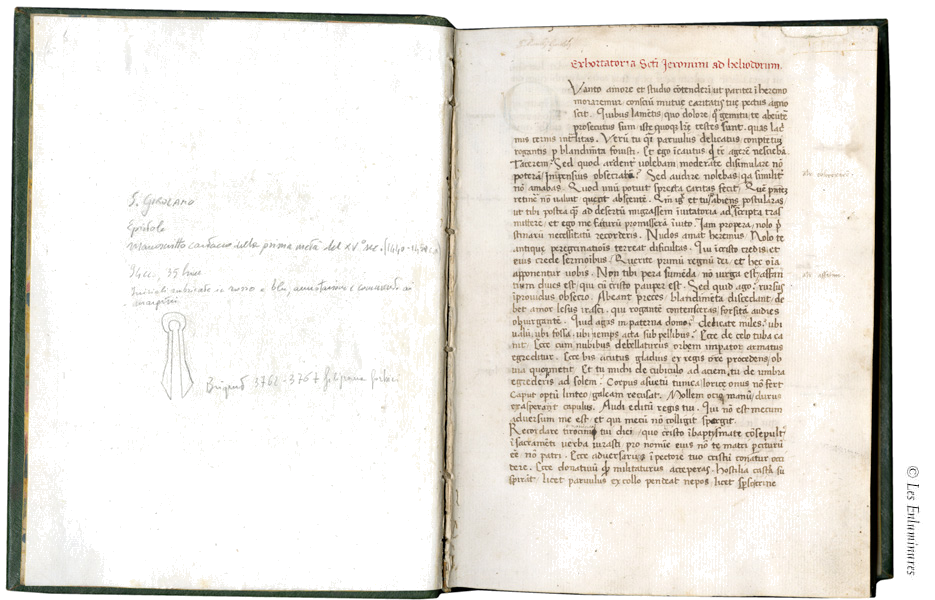 S. GIROLAMO
Epistole
Manoscritto cartaceo della prima metà del XV° sec. (1440-1450 c.)
34 cc., 35 linee
Iniziali rubricate in rosso e blu, annotazioni e commenti ai
margini
Briquet 3762-3767 filigrana forbici
Exhortatoria Scti Jeronimi ad heliodorum.
Vanto amore et studio cōtenderī ut pariter ī heremo
moraremur consciū mutue caritatis tue pectus agno
scit. Quibus lamētis, quo dolore q̄ gemitu te abeūtē
prosecutus sum iste quoq̨ lr̄e testes sunt quas lac
mis cernis īterlitas. Verū tu q̄si paruulus delicatus conptētū
rogantis p blandimta fouisti. Et ego īcautus qd tc̄ agerē nesciebā
Tacerem? Sed quod ardent̄ volebam moderate disimulare nō
poterā Inpensius obsecrarē? Sed audire nolebas qa similit̄
nō amabas. Quod unū potuit spreta caritas fecit. Quē pn̄tez
retinē nō ualuit querit absentē. Qm̄ igr̄ et tu abiens postularas
ut tibi postea q̄ ad desertū migrassem īuitatoria ad scripta tras
mitterē et ego me facturū promisserā īuito. Jam propera, nolo p
stinarū necessitatū recorderis. Nudos amat heremus. Nolo te
antique peregrinationis terreat dificultas. Qui ī cristo credis et
eius crede sermoibus. Querite primū regnū dei, et hec oīa
apponentur uobis. Non tibi pera sumēda nō uirga est affatī
num diues est, qui cū cristo pauper est. Sed quid ago? rursus
īprouidus obsecro. Abeant preces blandimēta discedant, de
bet amor lesus irasci. qui rogantē contenseras forsitā audies
obiurgantē. Quid agis in paterna domo? delicate miles? ubi
uallū, ubi fossa, ubi hiemps acta sub pellibus? Ecce de celo tuba ca
nit. Ecce cum nubibus debellaturus orbem impator armatus
egreditur. Ecce bis acutus gladius ex regis ore procedens, ob
uia queq̨ metit. Et tu michi de cubiculo ad aciem, tu de umbra
egrederis ad solem? Corpus asuetū tunica lorice onus nō fert
caput optū linteo galeam recusat. Mollem ocio manū durus
exasperat capulus. Audi edictū regis tui. Qui nō est mecum
aduersum me est, et qui mecū nō colligit spargit.
Recordare tirocinij tui diei, quo cristo ī baptismate cōsepult'
ī sacramēti verba iurasti pro nomīe eius nō te matri parciturū
eē nō patri. Ecce aduersarius ī pectore tuo cristū conatur occi
dere. Ecce donatiuū qd militaturus acceperas, hostilia castra su
spirāt. licet paruulus ex collo pendeat nepos, licet sparso crine
© Les Enluminures